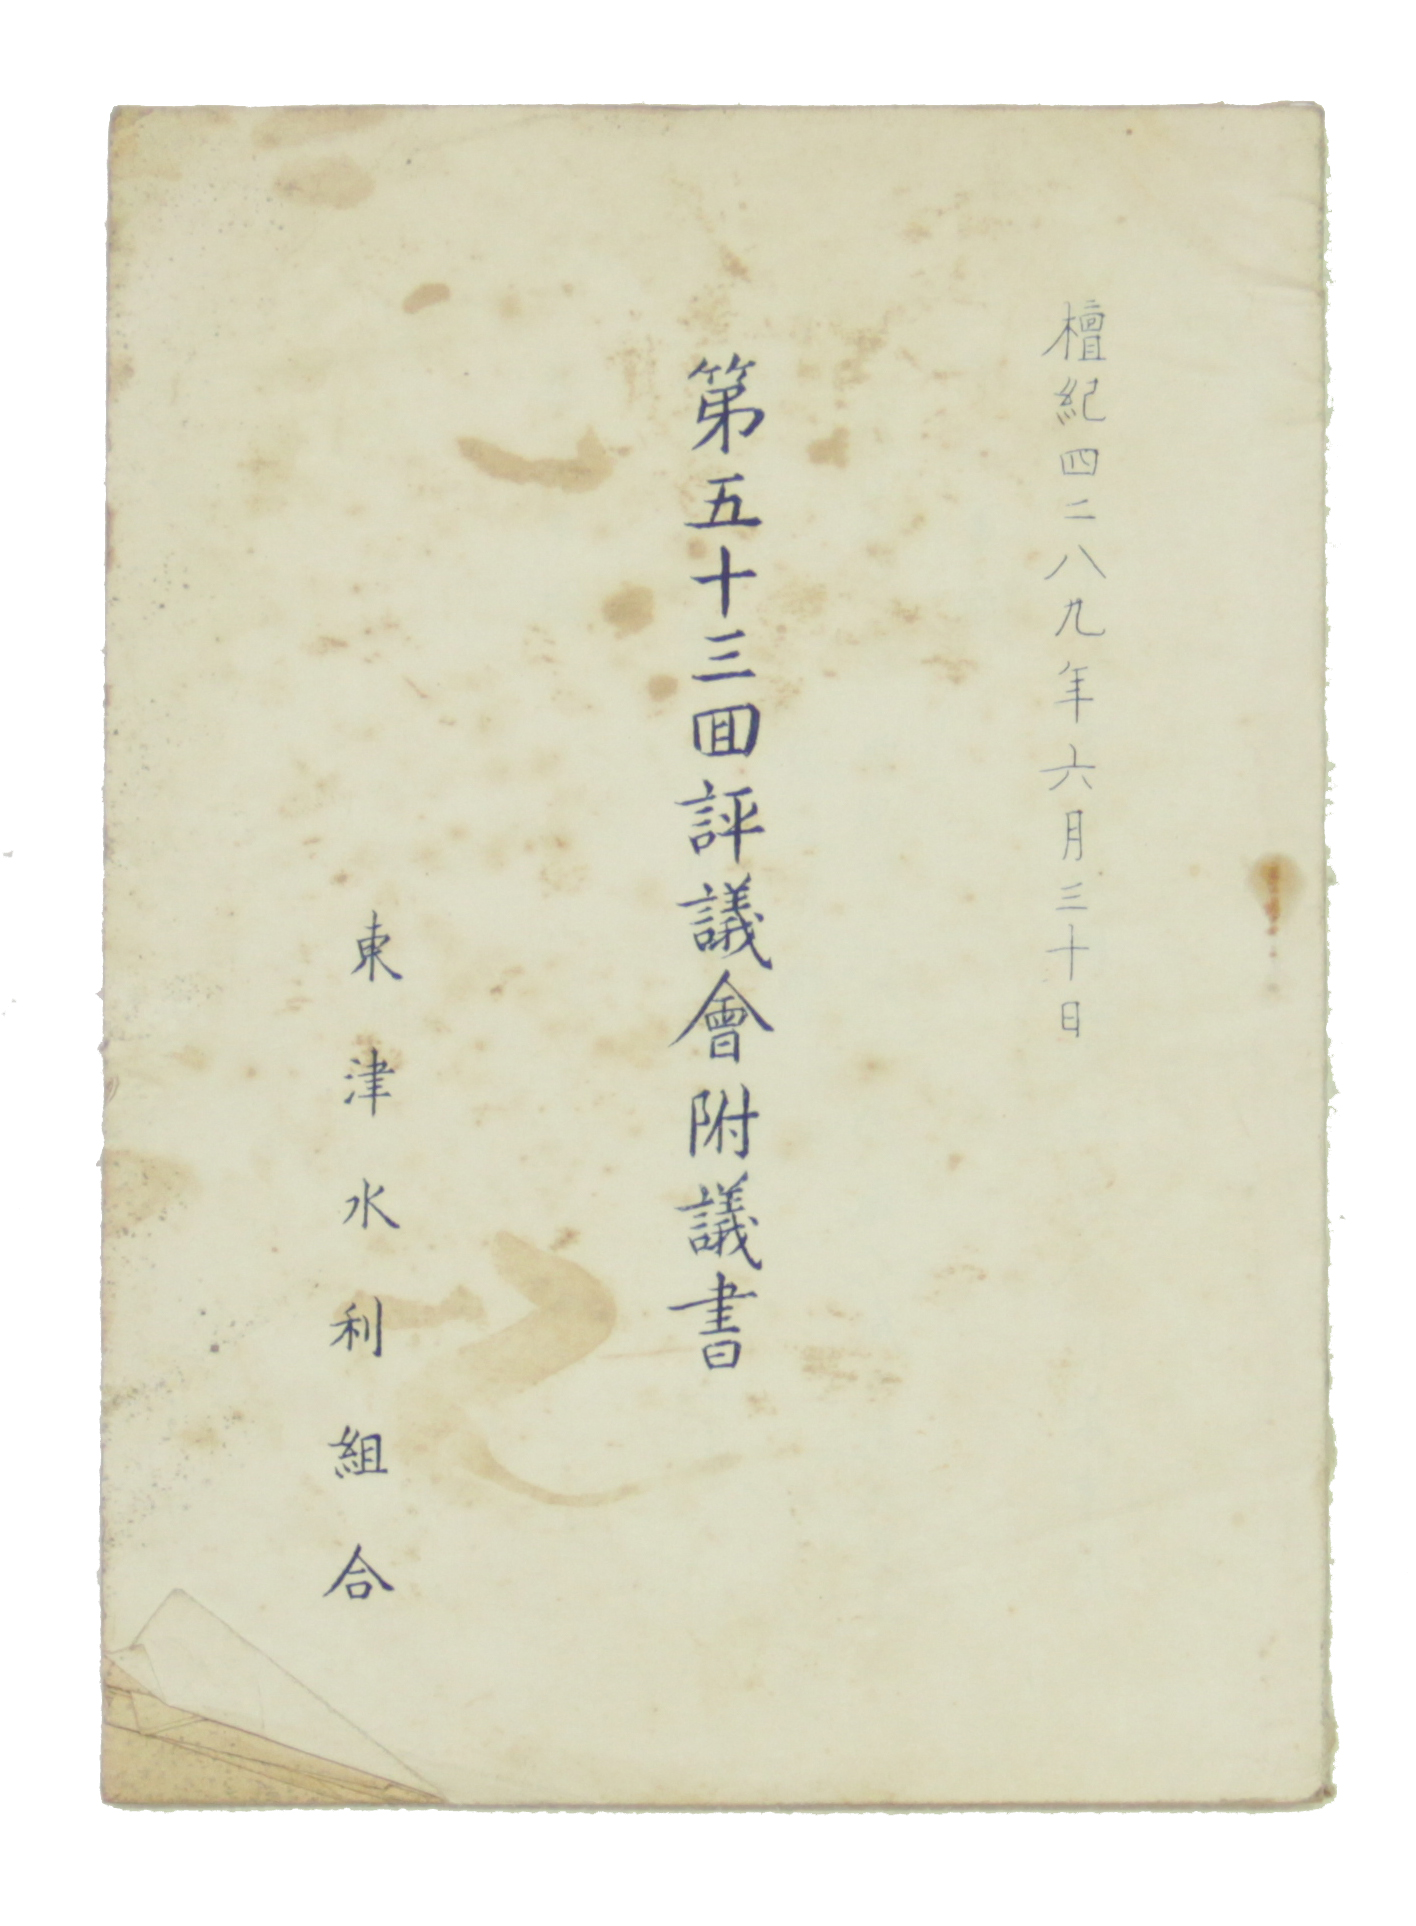 檀紀四二八九年六月三十日
第五十三回評議會附議書
東津水利組合